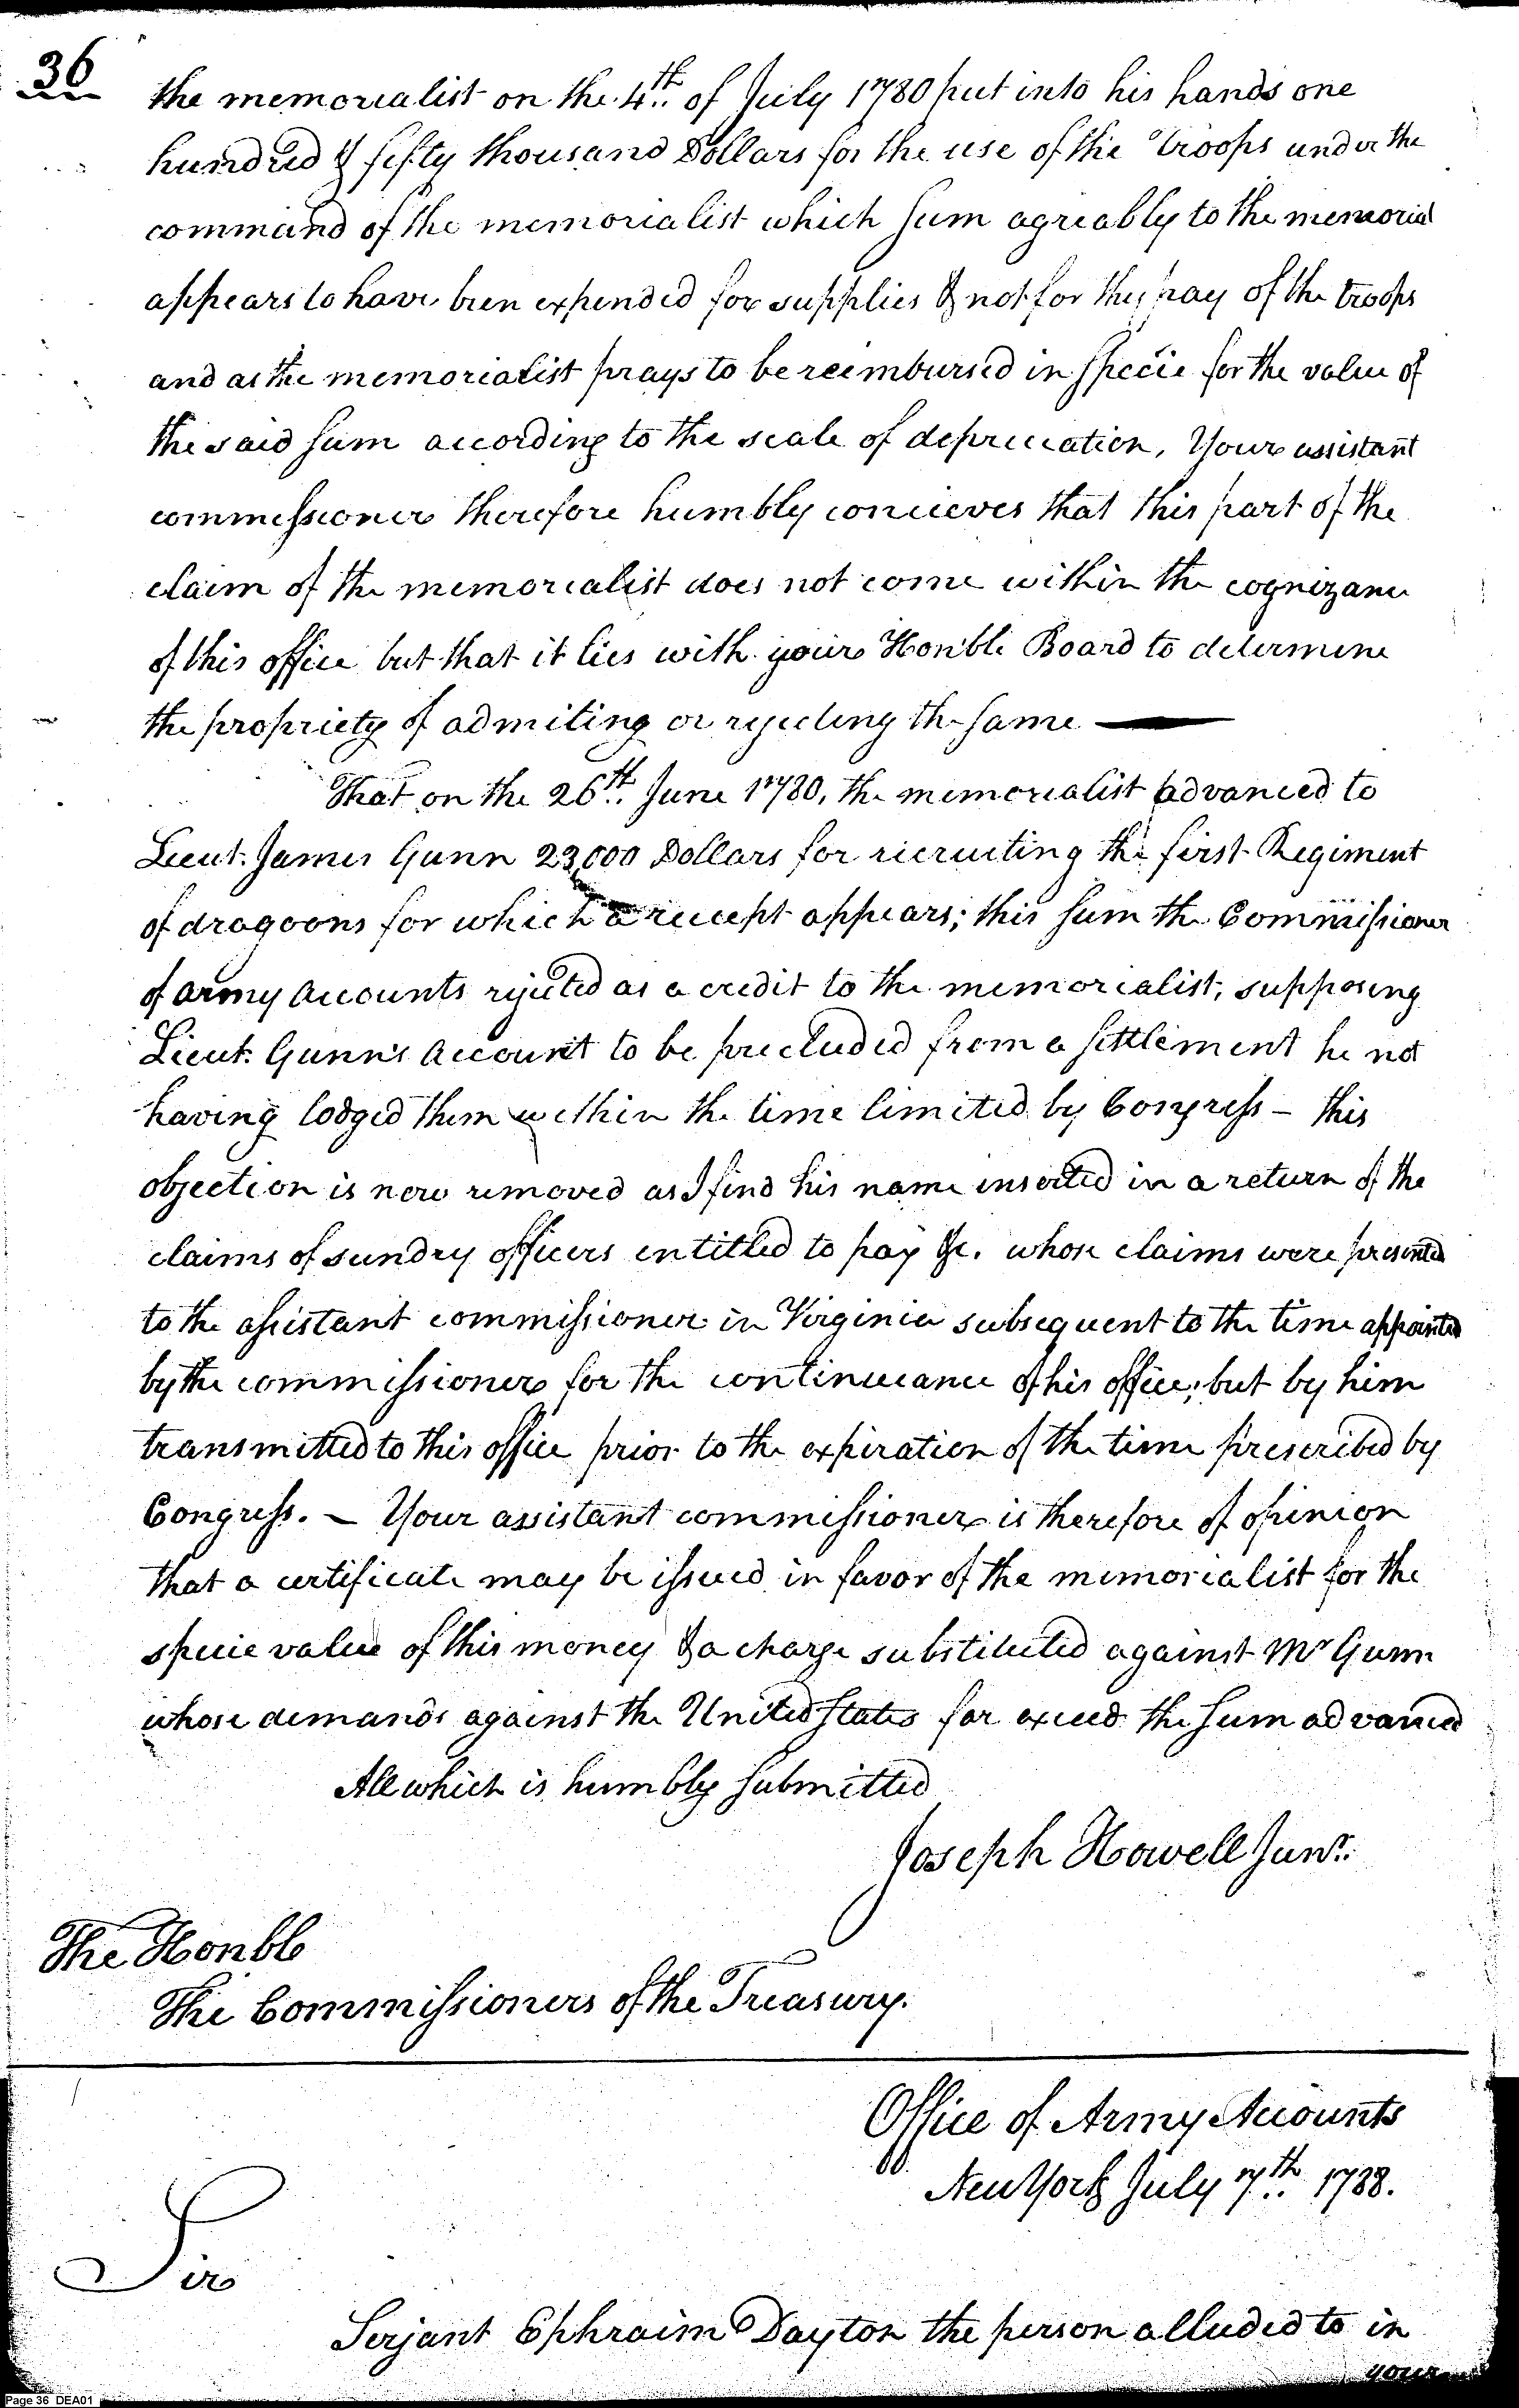 36
the memorialist on the 4th of July 1780 put into his hands one
hundred & fifty thousand Dollars for the use of the Troops under the
command of the memorialist which sum agreably to the memorial
appears to have been expended for supplies & not for the pay of the troops
and as the memorialist prays to be reimbursed in specie for the value of
the said sum according to the scale of depreciation, Your assistant
commissioner therefore humbly concieves that this part of the
claim of the memorialist does not come within the cognizance
of this office but that it lies with your Honble Board to determine
the propriety of admiting or rejecting the same —
That on the 26th June 1780, the memorialist advanced to
Lieut. James Gunn 23,000 Dollars for recruiting the first Regiment
of dragoons for which a receipt appears; this sum the Commissioner
of army accounts rejected as a credit to the memorialist, supposing
Lieut. Gunn's Account to be precluded from a settlement he not
having lodged them within the time limited by Congress - this
objection is now removed as I find his name inserted in a return of the
claims of sundry officers entitled to pay &c. whose claims were presented
to the assistant commissioner in Virginia subsequent to the time appointed
by the commissioner for the continuance of his office; but by him
transmitted to this office prior to the expiration of the time prescribed by
Congress. - Your assistant commissioner is therefore of opinion
that a certificate may be issued in favor of the memorialist for the
specie value of this money & a charge substituted against Mr Gunn
whose demands against the United States far exceed the sum advanced
All which is humbly submitted
Joseph Howell Junr.
The Honble
The Commissioners of the Treasury.
Office of Army Accounts
New York July 7th 1788.
Sir
Serjant Ephraim Dayton the person alluded to in
your
Page 36 DEA01